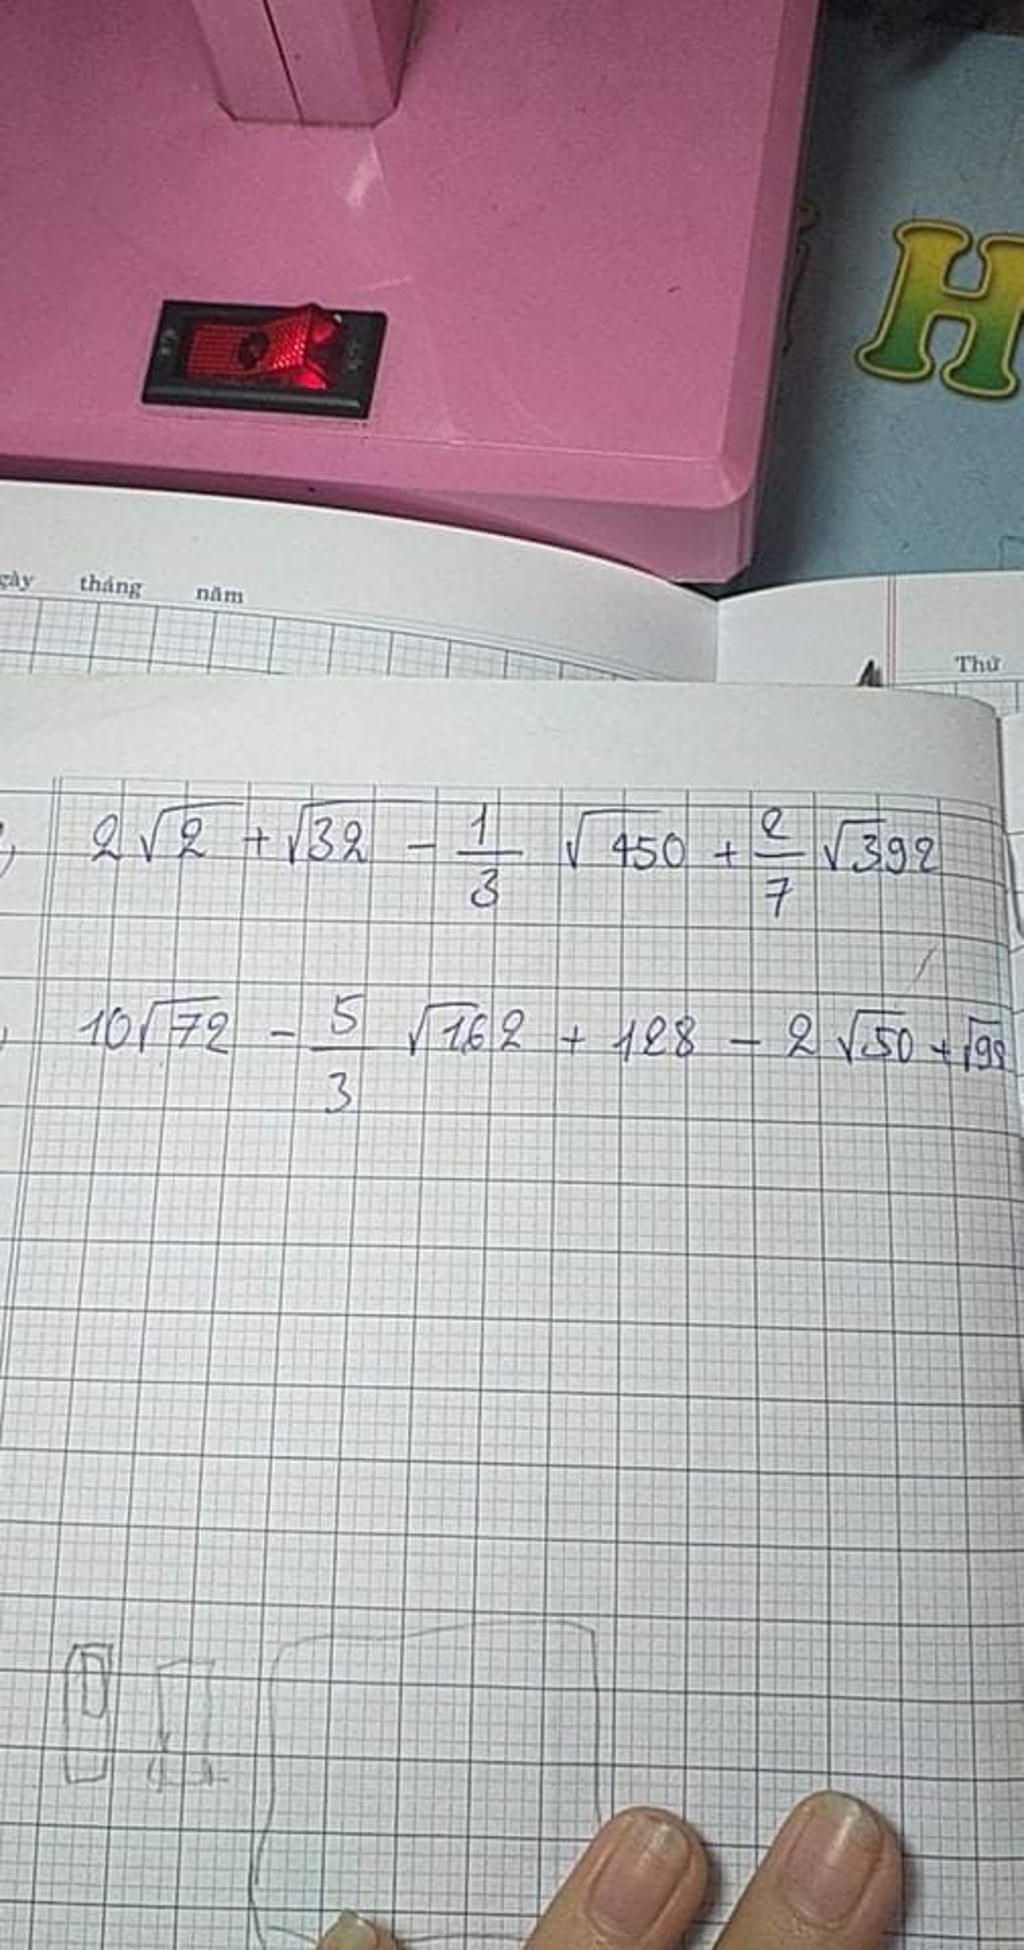 H
tháng năm
Thứ
2√2 + √32 - 1/3 √450 + 2/7 √392
10√72 - 5/3 √162 + 128 - 2√50 + √98